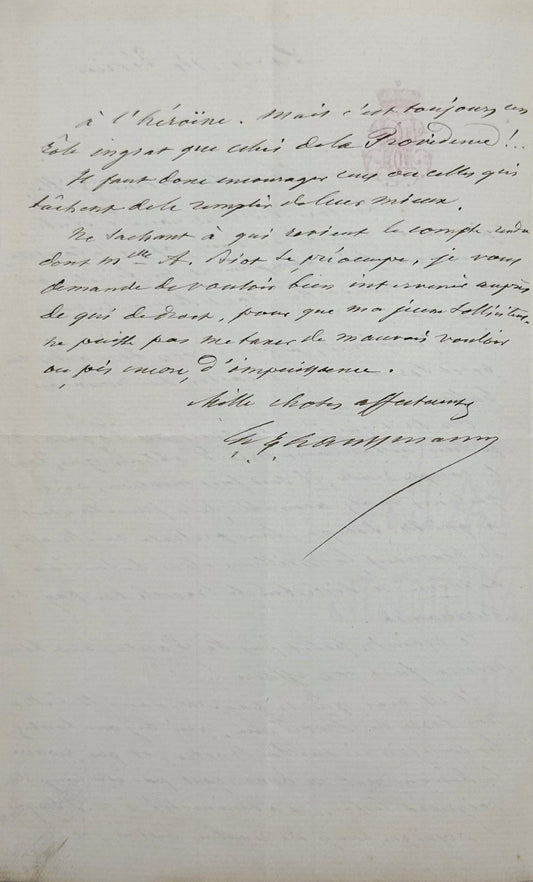 à l'héroïne. Mais c'est toujours un
rôle ingrat que celui de la Providence !..
Il faut donc encourager ceux ou celles qui
tâchent de le remplir de leur mieux.
Ne sachant à qui revient le compte-rendu
dont Mlle A. Biot se préocupe, je vous
demande de vouloir bien intervenir auprès
de qui de droit, pour que ma jeune solliciteuse
ne puisse pas me taxer de mauvais vouloir
ou, pis encore, d'impuissance.
Mille choses affectueuses